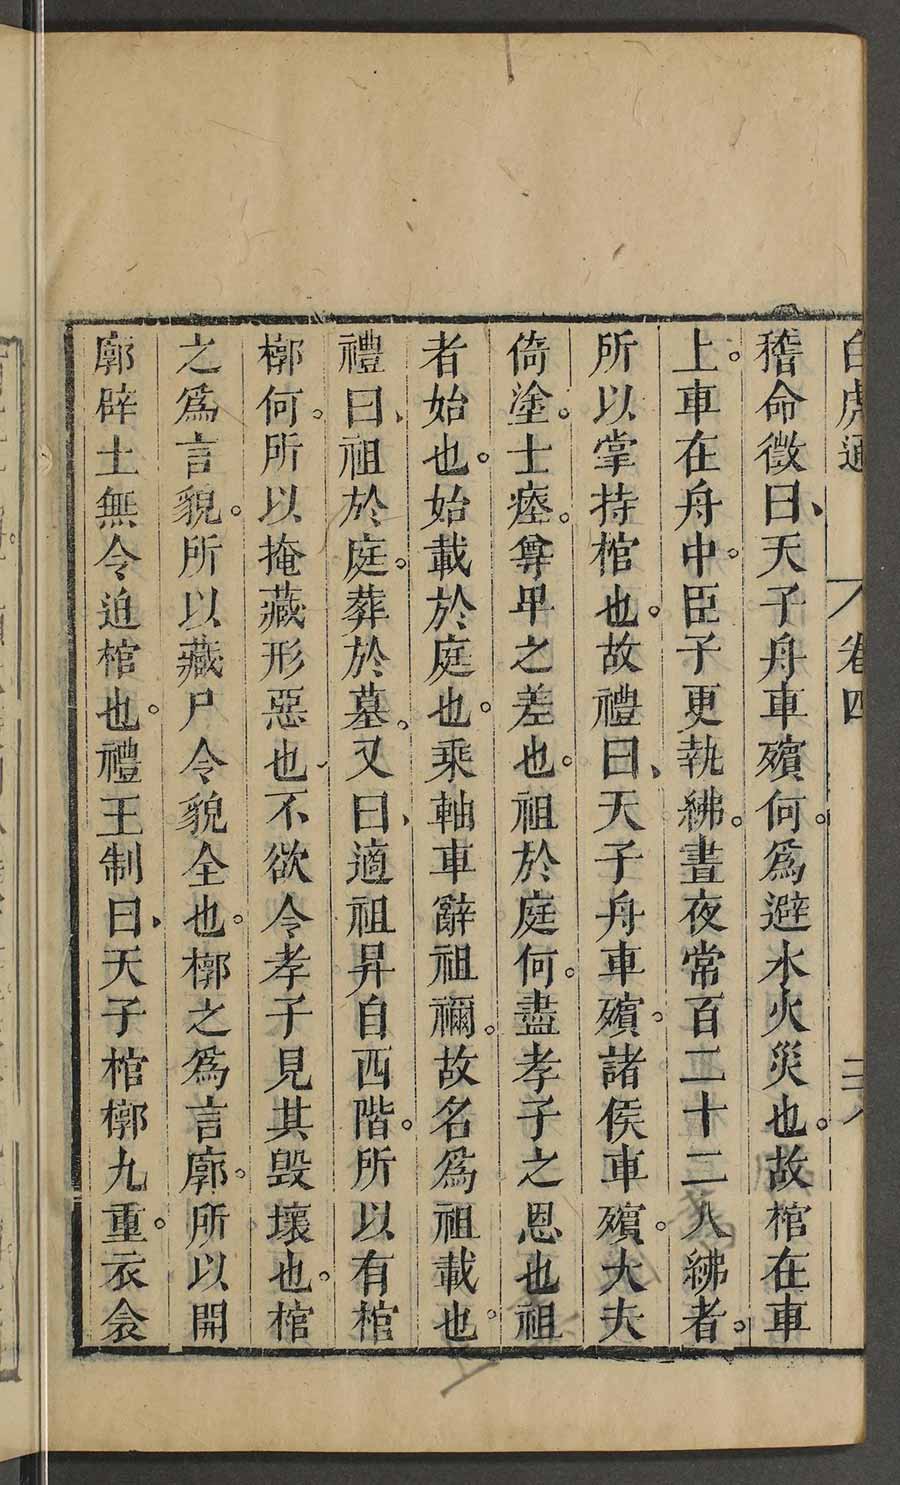 白虎通 卷四
稽命徵曰、天子舟車殯何。爲避水火災也。故棺在車
上。車在舟中。臣子更執紼。晝夜常百二十二人紼者。
所以掌持棺也。故禮曰、天子舟車殯。諸侯車殯。大夫
倚塗。士瘞。尊卑之差也。祖於庭何。盡孝子之恩也祖
者始也。始載於庭也。乘軸車辭祖禰。故名爲祖載也。
禮曰、祖於庭。葬於墓。又曰、適祖昇自西階。所以有棺
槨何。所以掩藏形惡也、不欲令孝子見其毀壞也。棺
之爲言貌。所以藏尸令貌全也。槨之爲言廓。所以開
廓辟土無令迫棺也。禮王制曰、天子棺槨九重。衣衾